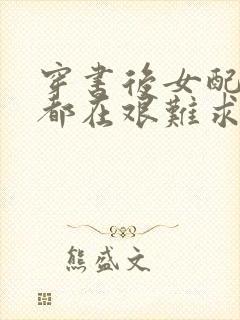 穿書後女配
都在艱難求
熊盛文